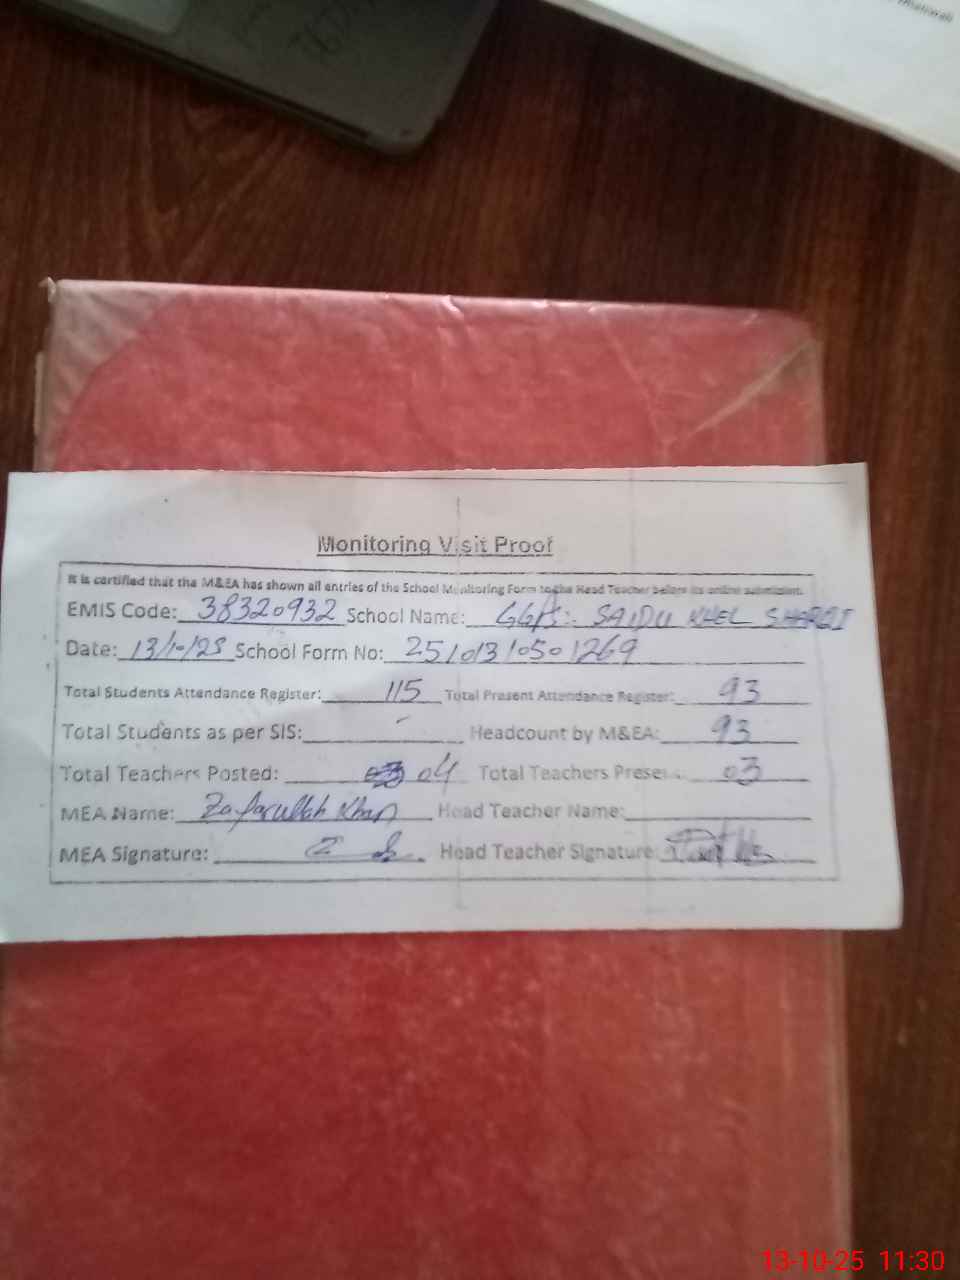 Monitoring Visit Proof
It is certified that the M&EA has shown all entries of the School Monitoring Form to the Head Teacher before its online submission.
EMIS Code: 38320932 School Name: GGPS: SAIDU KHEL SHARQI
Date: 13/10/25 School Form No: 25101310501269
Total Students Attendance Register: 115 Total Present Attendance Register: 93
Total Students as per SIS: - Headcount by M&EA: 93
Total Teachers Posted: 04 Total Teachers Present: 03
MEA Name: Zafarullah Khan Head Teacher Name:
MEA Signature: Head Teacher Signature:
13-10-25 11:30